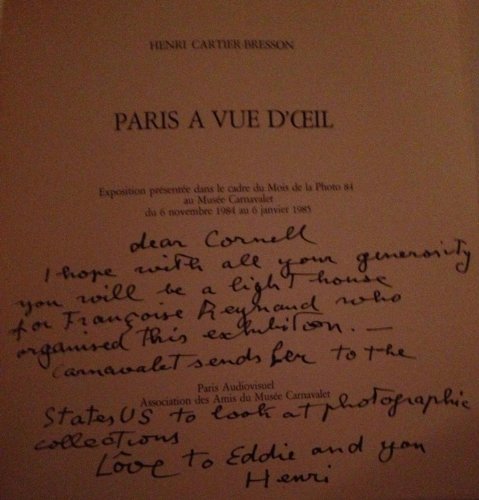 HENRI CARTIER-BRESSON
PARIS A VUE D'ŒIL
Exposition présentée dans le cadre du Mois de la Photo 84
au Musée Carnavalet
du 6 novembre 1984 au 6 janvier 1985
dear Cornell
I hope with all your generosity
you will be a light house
for Françoise Reynaud who
organised this exhibition. —
Carnavalet sends her to the
Paris Audiovisuel
Association des Amis du Musée Carnavalet
States US to look at photographic
collections
Lôve to Eddie and you
Henri